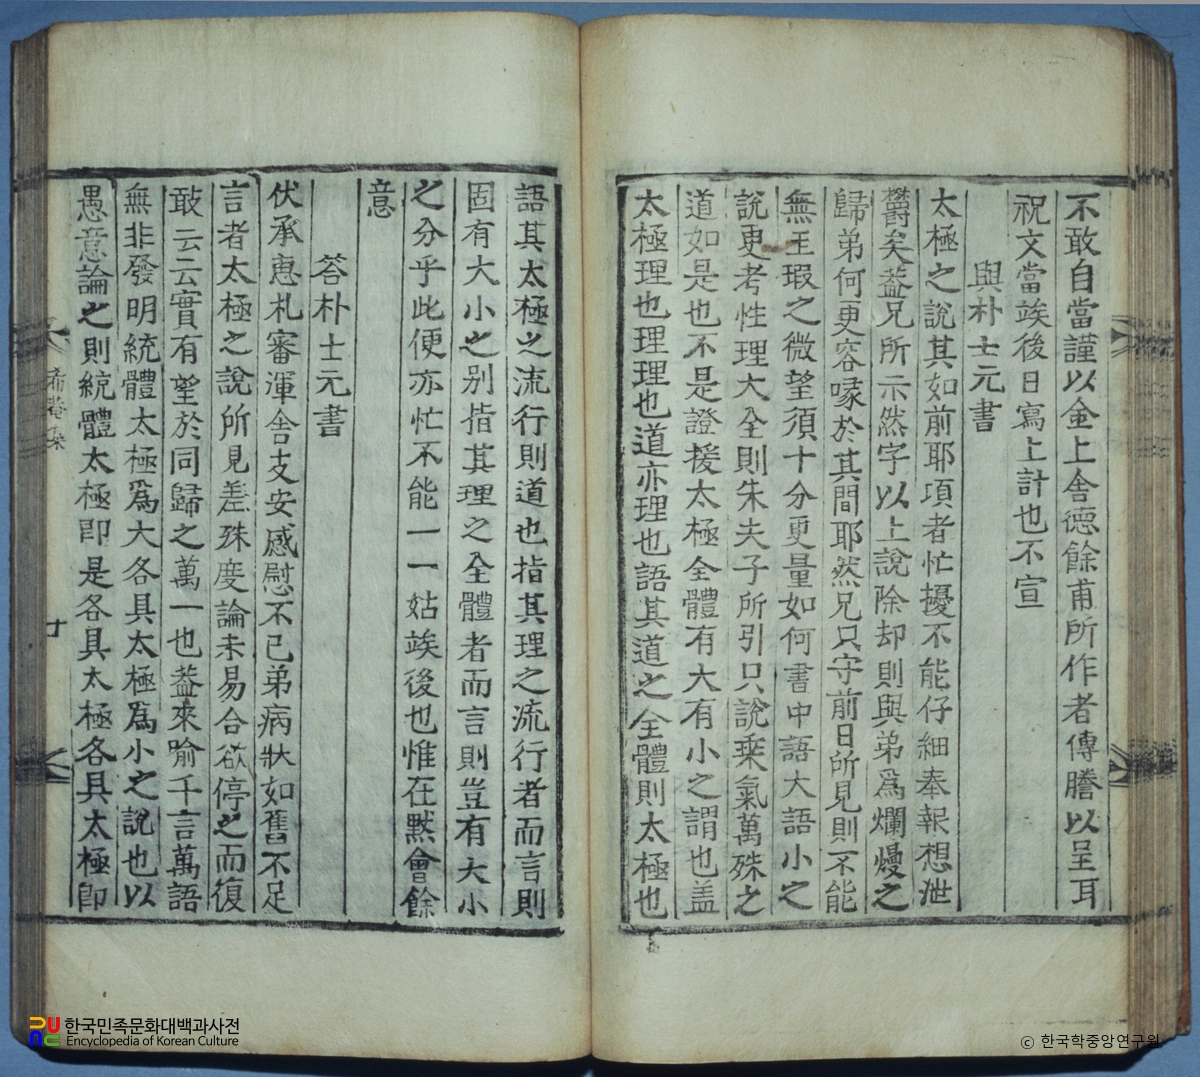 不敢自當謹以金上舎德餘甫所作者傳謄以呈耳
祝文當竢後日寫上計也不宣
與朴士元書
太極之說其如前耶項者忙擾不能仔細奉報想泄
欝矣葢兄所示然字以上說除却則與弟爲爛熳之
歸弟何更容喙於其間耶然兄只守前日所見則不能
無玉瑕之微望須十分更量如何書中語大語小之
說更考性理大全則朱夫子所引只說乗氣萬殊之
道如是也不是證援太極全體有大有小之謂也盖
太極理也理理也道亦理也語其道之全體則太極也
語其太極之流行則道也指其理之流行者而言則
固有大小之别指其理之全體者而言則豈有大小
之分乎此便亦忙不能一一姑竢後也惟在黙會餘
意
答朴士元書
伏承惠札審渾舎支安感慰不已弟病狀如舊不足
言者太極之說所見差殊度論未易合欲停之而復
敢云云實有望於同歸之萬一也葢來喻千言萬語
無非發明統體太極爲大各具太極爲小之說也以
愚意論之則統體太極即是各具太極各具太極即
希菴集
十
한국민족문화대백과사전
Encyclopedia of Korean Culture
© 한국학중앙연구원